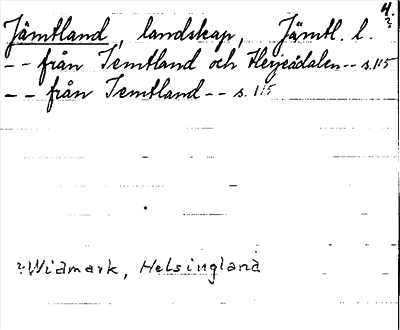 4.
Jämtland, landskap, Jämtl. l.
-- från Jemtland och Herjeådalen -- s. 115
-- från Jemtland -- s. 115
Widmark, Helsingland